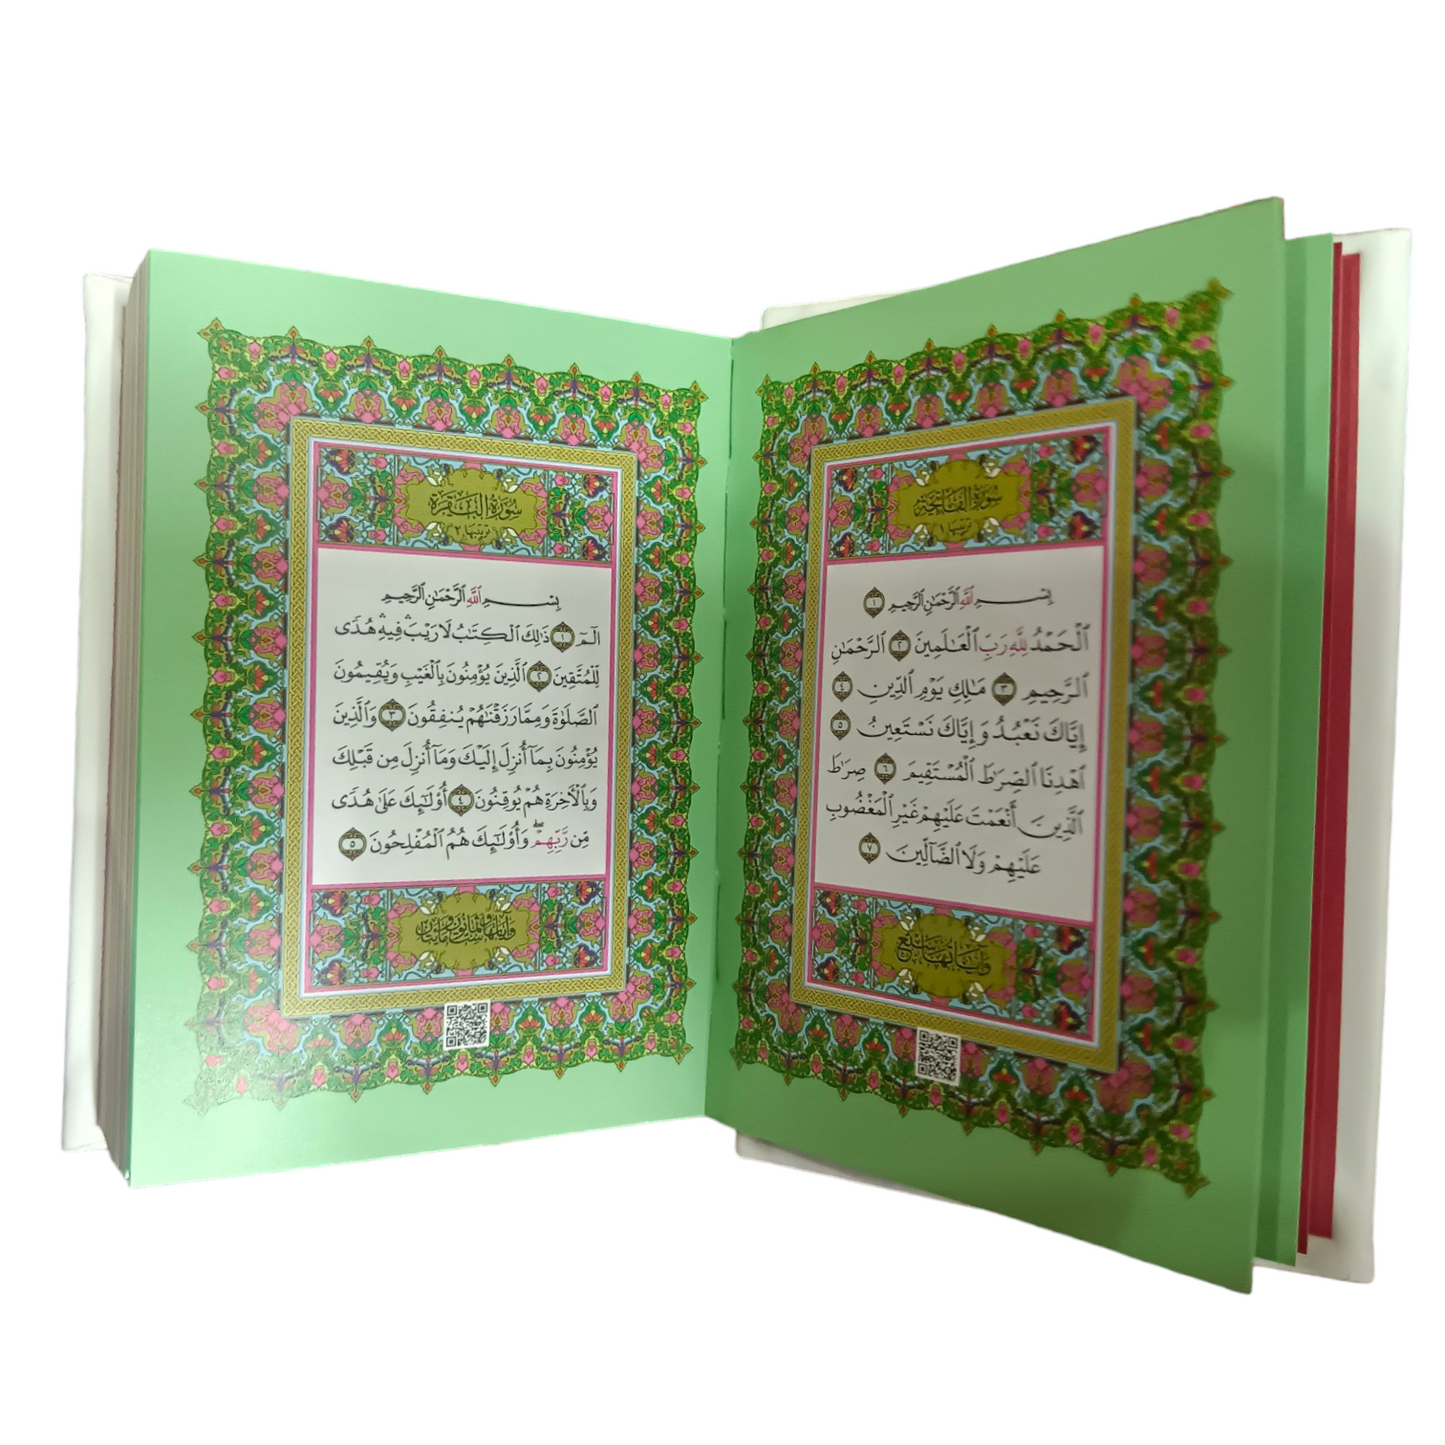 سُورَةُ الفَاتِحَةِ
ترتيبها ١
بِسْمِ ٱللَّهِ ٱلرَّحْمَٰنِ ٱلرَّحِيمِ ١
ٱلْحَمْدُ لِلَّهِ رَبِّ ٱلْعَٰلَمِينَ ٢ ٱلرَّحْمَٰنِ
ٱلرَّحِيمِ ٣ مَٰلِكِ يَوْمِ ٱلدِّينِ ٤
إِيَّاكَ نَعْبُدُ وَإِيَّاكَ نَسْتَعِينُ ٥
ٱهْدِنَا ٱلصِّرَٰطَ ٱلْمُسْتَقِيمَ ٦ صِرَٰطَ
ٱلَّذِينَ أَنْعَمْتَ عَلَيْهِمْ غَيْرِ ٱلْمَغْضُوبِ
عَلَيْهِمْ وَلَا ٱلضَّآلِّينَ ٧
وَآيَاتُهَا سَبْعٌ
سُورَةُ البَقَرَةِ
ترتيبها ٢
بِسْمِ ٱللَّهِ ٱلرَّحْمَٰنِ ٱلرَّحِيمِ
الٓمٓ ١ ذَٰلِكَ ٱلْكِتَٰبُ لَا رَيْبَ ۛ فِيهِ ۛ هُدًى
لِّلْمُتَّقِينَ ٢ ٱلَّذِينَ يُؤْمِنُونَ بِٱلْغَيْبِ وَيُقِيمُونَ
ٱلصَّلَوٰةَ وَمِمَّا رَزَقْنَٰهُمْ يُنفِقُونَ ٣ وَٱلَّذِينَ
يُؤْمِنُونَ بِمَآ أُنزِلَ إِلَيْكَ وَمَآ أُنزِلَ مِن قَبْلِكَ
وَبِٱلْءَاخِرَةِ هُمْ يُوقِنُونَ ٤ أُو۟لَٰٓئِكَ عَلَىٰ هُدًى
مِّن رَّبِّهِمْ ۖ وَأُو۟لَٰٓئِكَ هُمُ ٱلْمُفْلِحُونَ ٥